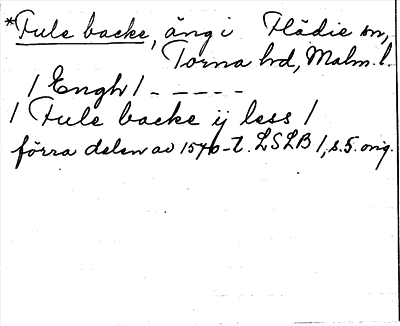 *Fule backe, äng i Flädie sn,
Torna hd, Malm. l.
/ Engh / - - - - -
/ Fule backe ij less /
förra delen av 1540-t. LSLB 1, s. 5. orig.